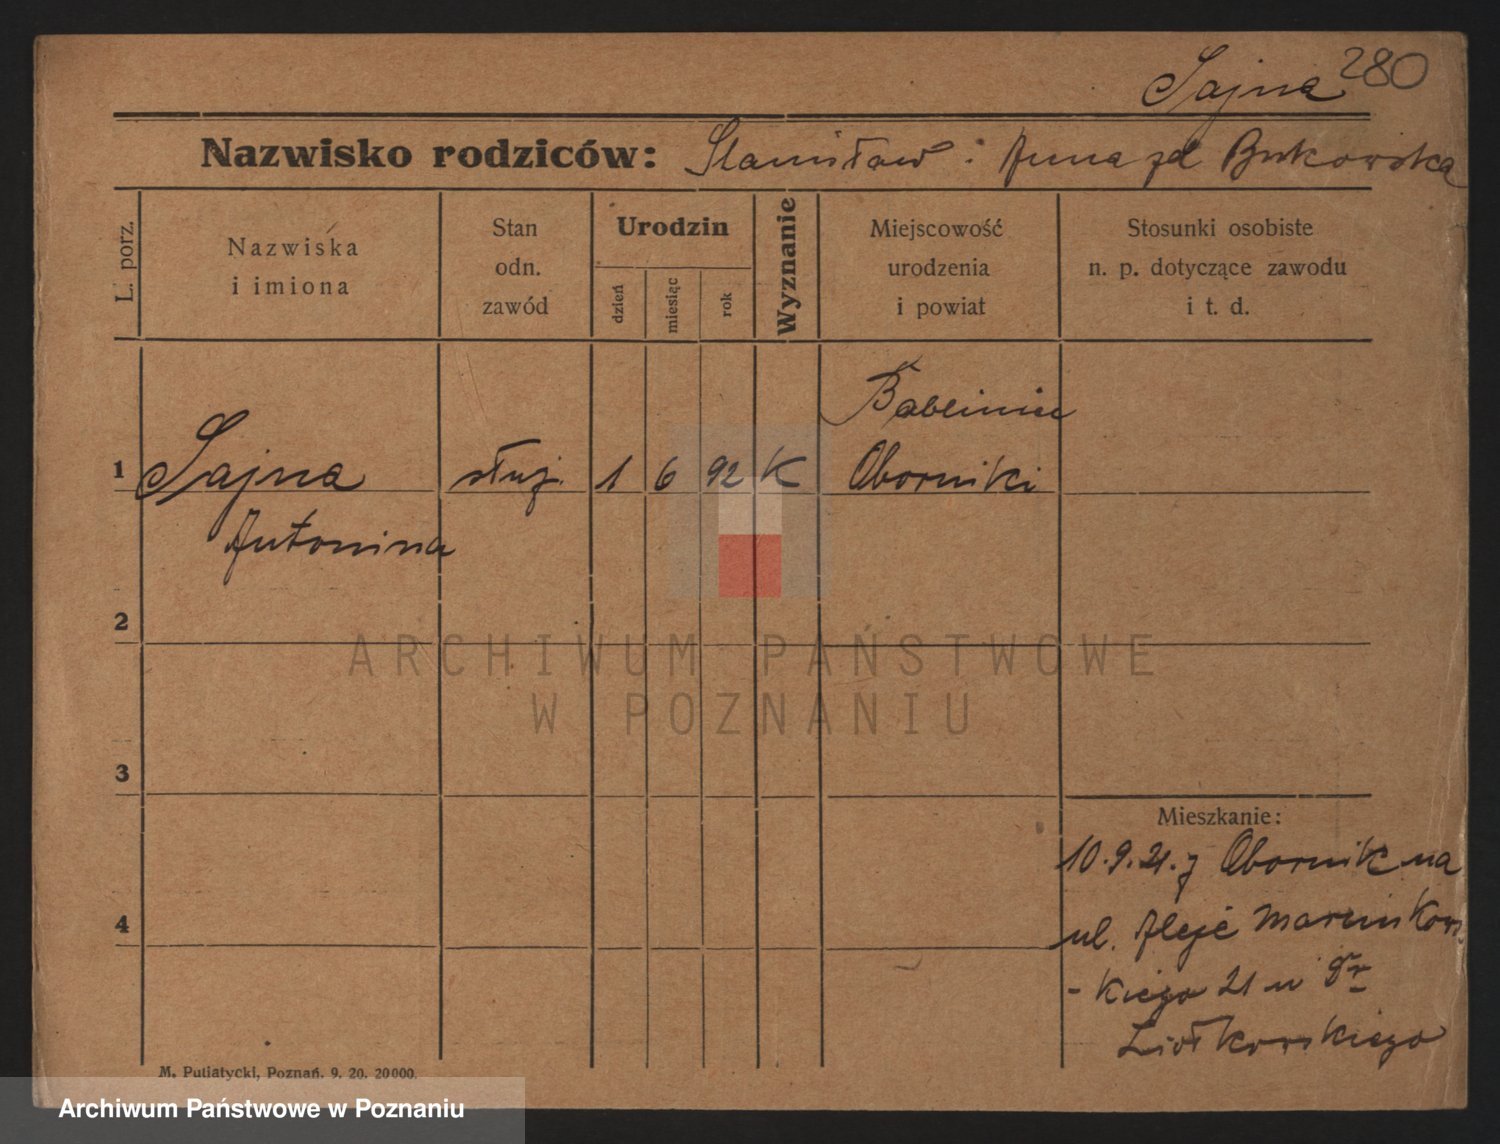 Sajna 280
Nazwisko rodziców: Stanisław i Anna zd Bukowska
L. porz.
Nazwiska
i imiona
Stan
odn.
zawód
Urodzin
dzień
miesiąc
rok
Wyznanie
Miejscowość
urodzenia
i powiat
Stosunki osobiste
n. p. dotyczące zawodu
i t. d.
Babliniec
1 Sajna służ. 1 6 92 K Oborniki
Antonina
2
ARCHIWUM PAŃSTWOWE
W POZNANIU
3
Mieszkanie:
10.9.21. z Obornik na
4
ul. Aleje Marcinkows
- kiego 21 u Dr
Ziołkowskiego
M. Putiatycki, Poznań. 9. 20. 20000.
Archiwum Państwowe w Poznaniu